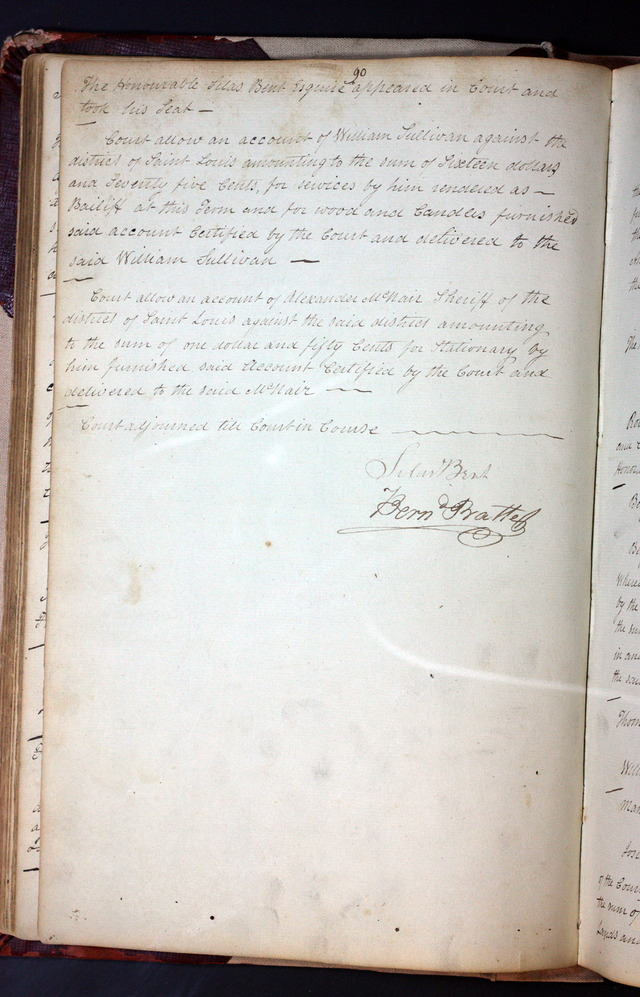 90
The Honourable Silas Bent Esquire appeared in Court and
took his Seat —
Court allow an account of William Sullivan against the
district of Saint Louis amounting to the sum of Sixteen dollars
and Seventy five Cents, for services by him rendered as —
Bailiff at this Term and for wood and Candles furnished
said account Certified by the Court and delivered to the
said William Sullivan —
Court allow an account of Alexander McNair Sheriff of the
district of Saint Louis against the said district amounting
to the sum of one dollar and fifty Cents for Stationary by
him furnished said Account Certified by the Court and
delivered to the said McNair —
Court adjourned till Court in Course —
Silas Bent
Bernd Pratte
The
and
Honor
Where
by the
in and
the said
Thom
Will
Mar
Jose
of the Cour
the sum of
Lands and